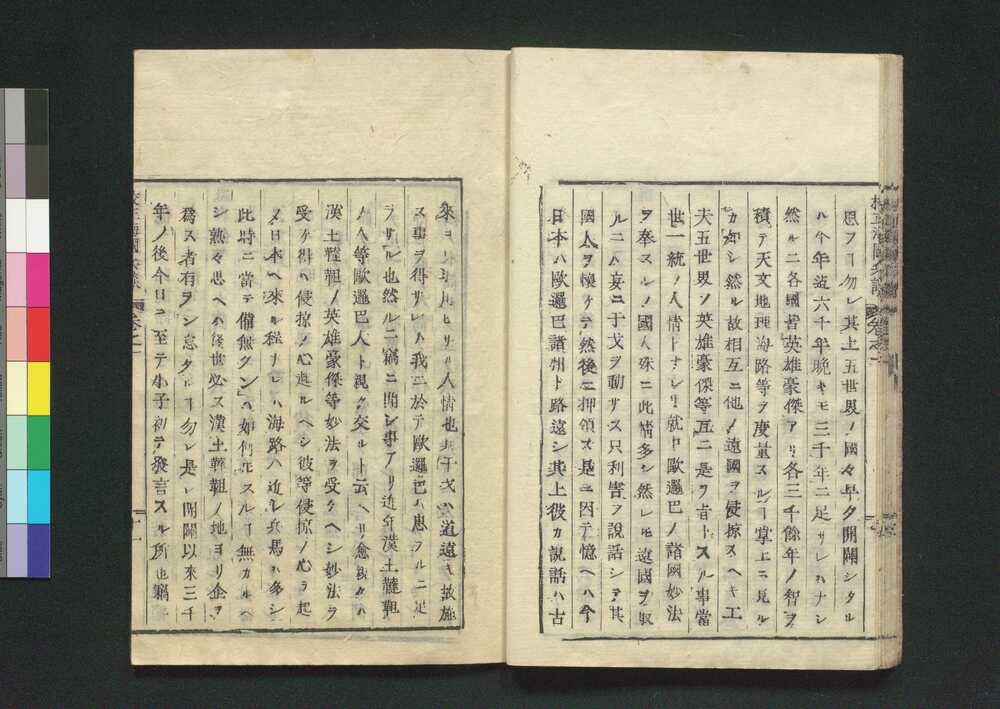 思フヿ勿レ其上五世界ノ國々早ク開闢シタル
ハ今年迠六千年晩キモ三千年ニ足サレハナシ
然ルニ各國皆英雄豪傑アリ各三千餘年ノ智ヲ
積テ天文地理海路等ヲ度量スルヿ掌上ニ見ル
カ如シ然ル故相互ニ他ノ遠國ヲ侵掠スヘキ工
夫五世界ノ英雄豪傑等互ニ是ヲ旨トスル事當
世一統ノ人情トナレリ就中歐邏巴ノ諸國妙法
ヲ奉スルノ國人殊ニ此情多シ然レ𪜈遠國ヲ取
ルニハ妄ニ干戈ヲ動サス只利害ヲ説話シテ其
國人ヲ懷ケテ然後ニ押領ス是ニ因テ憶ヘハ今
日本ハ歐邏巴諸州ト路遠シ其上彼カ説話ハ古
來ヨリ
人情也
干戈ハ道遠キ故施
ス事ヲ得サレハ我ニ於テ歐邏巴ハ患フルニ足
ラサル也然ルニ竊ニ聞シ事アリ近年漢土韃靼
ノ人等歐邏巴人ト親ク交ルト云ヘリ愈親クハ
漢土韃靼ノ英雄豪傑等妙法ヲ受クヘシ妙法ヲ
受ケ得ハ侵掠ノ心起ルヘシ彼等侵掠ノ心ヲ起
メ日本ヘ來ル程ナレハ海路ハ近シ兵馬ハ多シ
此時ニ當テ備無クンハ如何𪜈スルヿ無カルヘ
シ熟々思ヘハ後世必ス漢土韃靼ノ地ヨリ企ヲ
爲ス者有ヲン怠タルヿ勿レ是レ開闢以來三千
年ノ後今日ニ至テ小子初テ發言スル所也竊